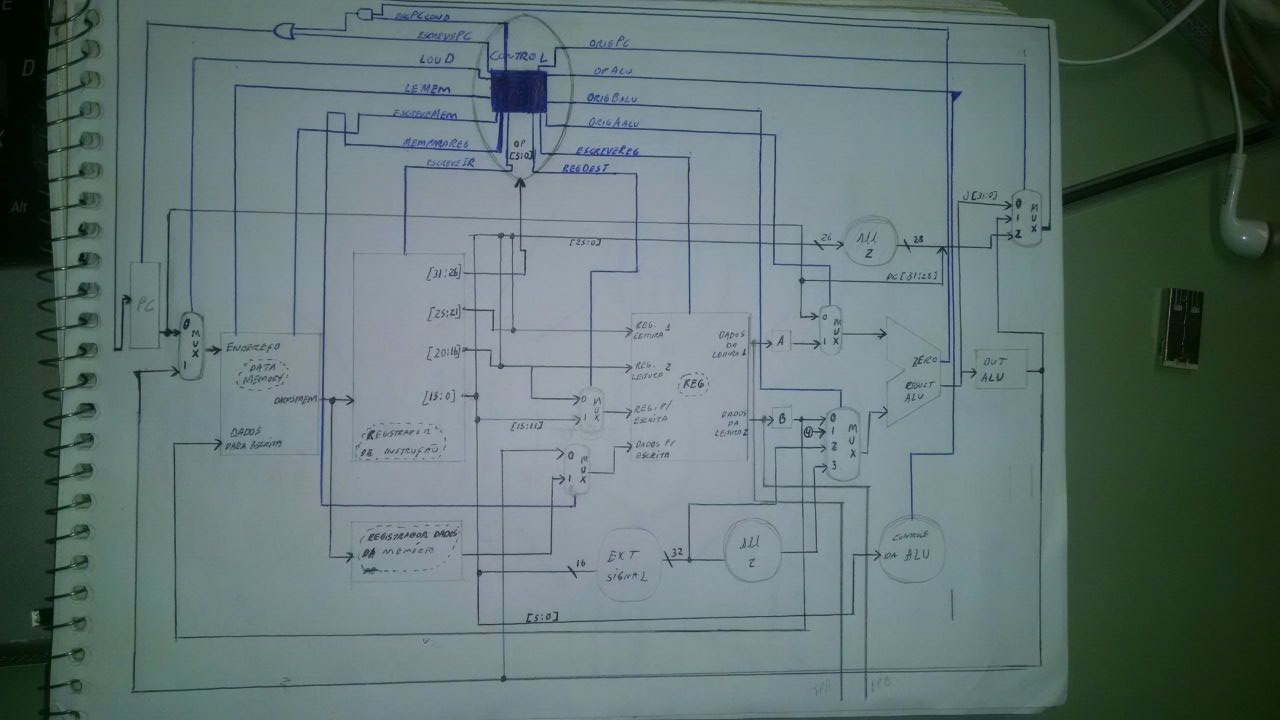 ESCPCCOND
ESCREVEPC
LOUD
LEMEM
ESCREVEMEM
MEMPARAREG
ESCREVEIR
CONTROL
OP
[5:0]
ORIGPC
OPALU
ORIGBALU
ORIGAALU
ESCREVEREG
REGDEST
J[31:0]
0
1
2
MUX
[25:0]
26
SLL
2
28
PC[31:28]
PC
0
MUX
1
ENDEREÇO
DATA
MEMORY
DADOSMEM
DADOS
PARA ESCRITA
[31:26]
[25:21]
[20:16]
[15:0]
REGISTRADOR
DE INSTRUÇÃO
REG.
LEITURA 1
REG.
LEITURA 2
REG. P/
ESCRITA
DADOS P/
ESCRITA
REG
DADOS
DA
LEITURA 1
DADOS
DA
LEITURA 2
0
1
MUX
[15:11]
0
1
MUX
A
B
0
1
MUX
4
0
1
2
3
MUX
ZERO
RESULT
ALU
OUT
ALU
REGISTRADOR DADOS
DA MEMÓRIA
16
EXT
SIGNAL
32
SLL
2
CONTROLE
DA ALU
[5:0]
Alt
D